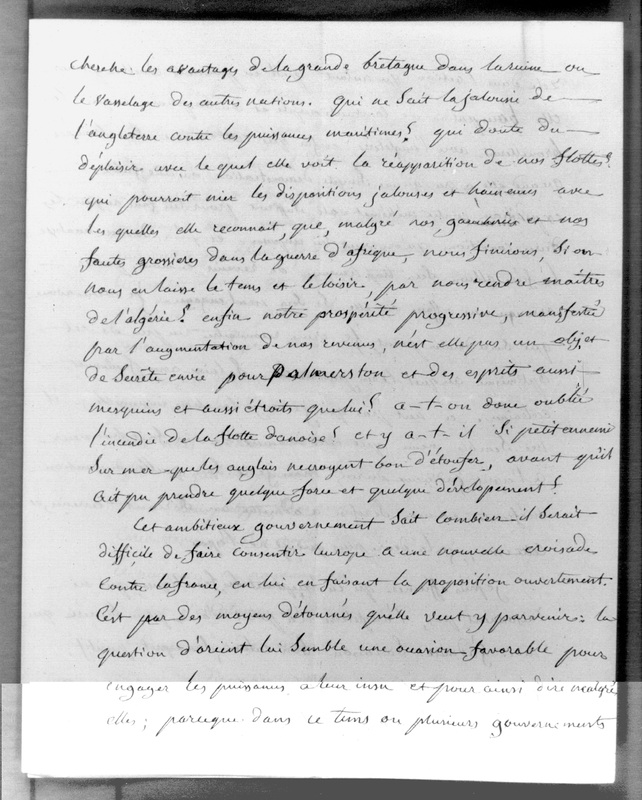 cherche les avantages de la grande bretagne dans la ruine ou
le vasselage des autres nations. qui ne sait la jalousie de
l'angleterre contre les puissances maritimes? qui doute du
déplaisir avec le quel elle voit la réapparition de nos flottes?
qui pourroit nier les dispositions jalouses et haineuses avec
les quelles elle reconnait, que, malgré nos et nos
fautes grossieres dans la guerre d'afrique, nous finirons, si on
nous en laisse le tems et le loisir, par nous rendre maîtres
de l'algérie? enfin notre prospérité progressive, manifestée
par l'augmentation de nos revenus, n'est elle pas un objet
de secrète envie pour palmerston et des esprits aussi
mesquins et aussi étroits que lui? a-t-on donc oublié
l'incendie de la flotte danoise? et y a-t-il si petit ennemi
sur mer que les anglais ne croyent bon d'étoufer, avant qu'il
ait pu prendre quelque force et quelque dévelopement?
Cet ambitieux gouvernement sait combien il serait
difficile de faire consentir l'europe a une nouvelle croisade
contre la france, en lui en faisant la proposition ouvertement.
C'est par des moyens détournés qu'elle veut y parvenir: la
question d'orient lui semble une occasion favorable pour
engager les puissances a leur insu et pour ainsi dire malgré
elles; parceque dans ce tems ou plusieurs gouvernements